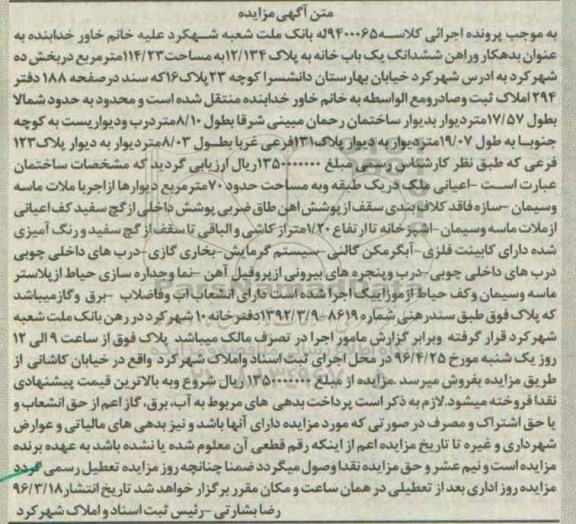 متن آگهی مزایده
به موجب پرونده اجرائی کلاسه ۹۴۰۰۰۶۵ له بانک ملت شعبه شهرکرد علیه خانم خاور خدابنده به
عنوان بدهکار وراهن ششدانگ یک باب خانه به پلاک ۱۲/۱۳۴ به مساحت ۱۱۴/۲۳ مترمربع دربخش ده
شهرکرد به ادرس شهرکرد خیابان بهارستان دانشسرا کوچه ۲۳ پلاک ۱۶ که سند درصفحه ۱۸۸ دفتر
۲۹۴ املاک ثبت وصادرومع الواسطه به خانم خاور خدابنده منتقل شده است و محدود به حدود شمالا
بطول ۱۷/۵۷ متردیوار بدیوار ساختمان رحمان مبینی شرقا بطول ۸/۱۰ متردرب ودیواریست به کوچه
جنوبا به طول ۱۹/۰۷ متردیوار به دیوار پلاک ۱۳۱ فرعی غربا بطول ۸/۰۳ متردیوار به دیوار پلاک ۱۲۳
فرعی که طبق نظر کارشناس رسمی مبلغ ۱۳۵۰۰۰۰۰۰۰ ریال ارزیابی گردید که مشخصات ساختمان
عبارت است -اعیانی ملک دریک طبقه وبه مساحت حدود ۷۰ مترمربع دیوارها ازاجربا ملات ماسه
وسیمان -سازه فاقد کلاف بندی سقف ازپوشش اهن طاق ضربی پوشش داخلی ازگچ سفید کف اعیانی
ازملات ماسه وسیمان -اشپزخانه تا ارتفاع ۱/۲۰ متراز کاشی و الباقی تا سقف از گچ سفید و رنگ آمیزی
شده دارای کابینت فلزی -آبگرمکن گالنی -سیستم گرمایش -بخاری گازی -درب های داخلی چوبی
درب های داخلی چوبی -درب وپنجره های بیرونی ازپروفیل آهن -نما وجداره سازی حیاط ازپلاستر
ماسه وسیمان وکف حیاط ازموزاییک اجرا شده است دارای انشعاب آب وفاضلاب -برق وگازمیباشد
که پلاک فوق طبق سندرهنی شماره ۸۶۱۹-۱۳۹۲/۳/۹ دفترخانه ۱۰ شهرکرد در رهن بانک ملت شعبه
شهرکرد قرار گرفته وبرابر گزارش مامور اجرا در تصرف مالک میباشد پلاک فوق از ساعت ۹ الی ۱۲
روز یک شنبه مورخ ۹۶/۴/۲۵ در محل اجرای ثبت اسناد واملاک شهرکرد واقع در خیابان کاشانی از
طریق مزایده بفروش میرسد .مزایده از مبلغ ۱۳۵۰۰۰۰۰۰۰ ریال شروع وبه بالاترین قیمت پیشنهادی
نقدا فروخته میشود.لازم به ذکر است پرداخت بدهی های مربوط به آب، برق، گاز اعم از حق انشعاب و
یا حق اشتراک و مصرف در صورتی که مورد مزایده دارای آنها باشد و نیز بدهی های مالیاتی و عوارض
شهرداری و غیره تا تاریخ مزایده اعم از اینکه رقم قطعی آن معلوم شده یا نشده باشد به عهده برنده
مزایده است و نیم عشر و حق مزایده نقدا وصول میگردد ضمنا چنانچه روز مزایده تعطیل رسمی گردد
مزایده روز اداری بعد از تعطیلی در همان ساعت و مکان مقرر برگزار خواهد شد تاریخ انتشار ۹۶/۳/۱۸
رضا بشارتی -رئیس ثبت اسناد و املاک شهرکرد